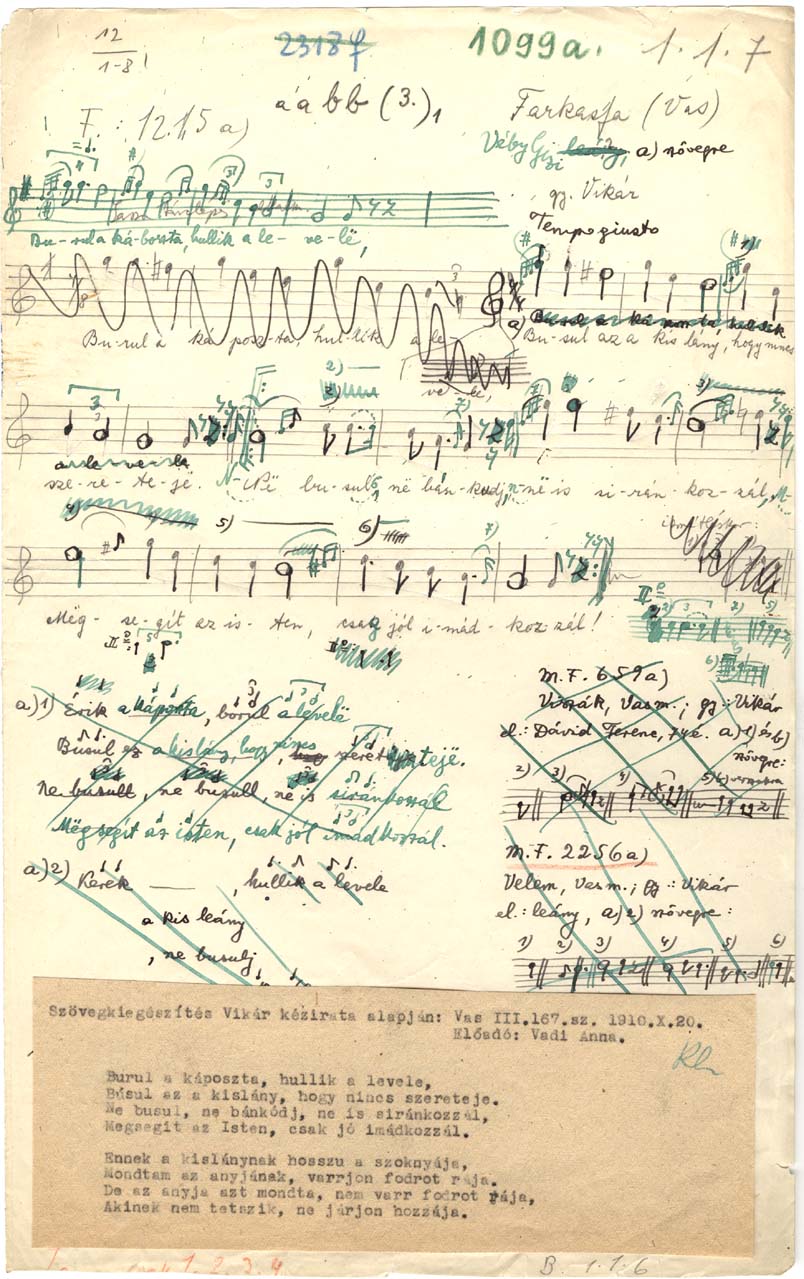 12
1-8
2318f
1099a.
1.1.7
a a b b (3.)1
F.: 12.1,5 a)
Farkasfa (Vas)
Véby Gizi a) szövegre
gy. Vikár
Tempo giusto
Bu-rul a ká-poszta, hullik a le-ve-lë,
Bu-rul a ká posz-ta, hul-lik a le
ve-le,
a) Bu-sul az a kis lány, hogy nincs
sze-re-te-je. Në bu-sulj, në bán-kodj, në is si-rán-koz-zál,
Mëg-se-git az is-ten, csak jól i-mád-koz-zál!
a) 1) Érik a káposta, borul a levelë
Busul ez a kislány, hogy nincs szeretteje.
ne busull, ne busull, ne is siránkozzál
Mëgsegít az isten, csak jól imádkozzál.
a) 2) Kerek — , hullik a levele
a kis leány
, ne busulj
M.F. 659a)
Viszák, Vas m.; gy.: Vikár
el.: Dávid Ferenc, 74 é. a) 1) és b)
szövegre:
2) 3) 4) 5)
M.F. 2256a)
Velem, Vas m.; gy.: Vikár
el.: leány, a) 2) szövegre:
1) 2) 3) 4) 5) 6)
Szövegkiegészítés Vikár kézirata alapján: Vas III.167.sz. 1910.X.20.
Előadó: Vadi Anna.
Burul a káposzta, hullik a levele,
Búsul az a kislány, hogy nincs szereteje.
Ne busul, ne bánkódj, ne is siránkozzál,
Megsegit az Isten, csak jó imádkozzál.
Ennek a kislánynak hosszu a szoknyája,
Mondtam az anyjának, varrjon fodrot rája.
De az anyja azt mondta, nem varr fodrot rája,
Akinek nem tetszik, ne járjon hozzája.
1. 2. 3. 4.
B. 1.1.6